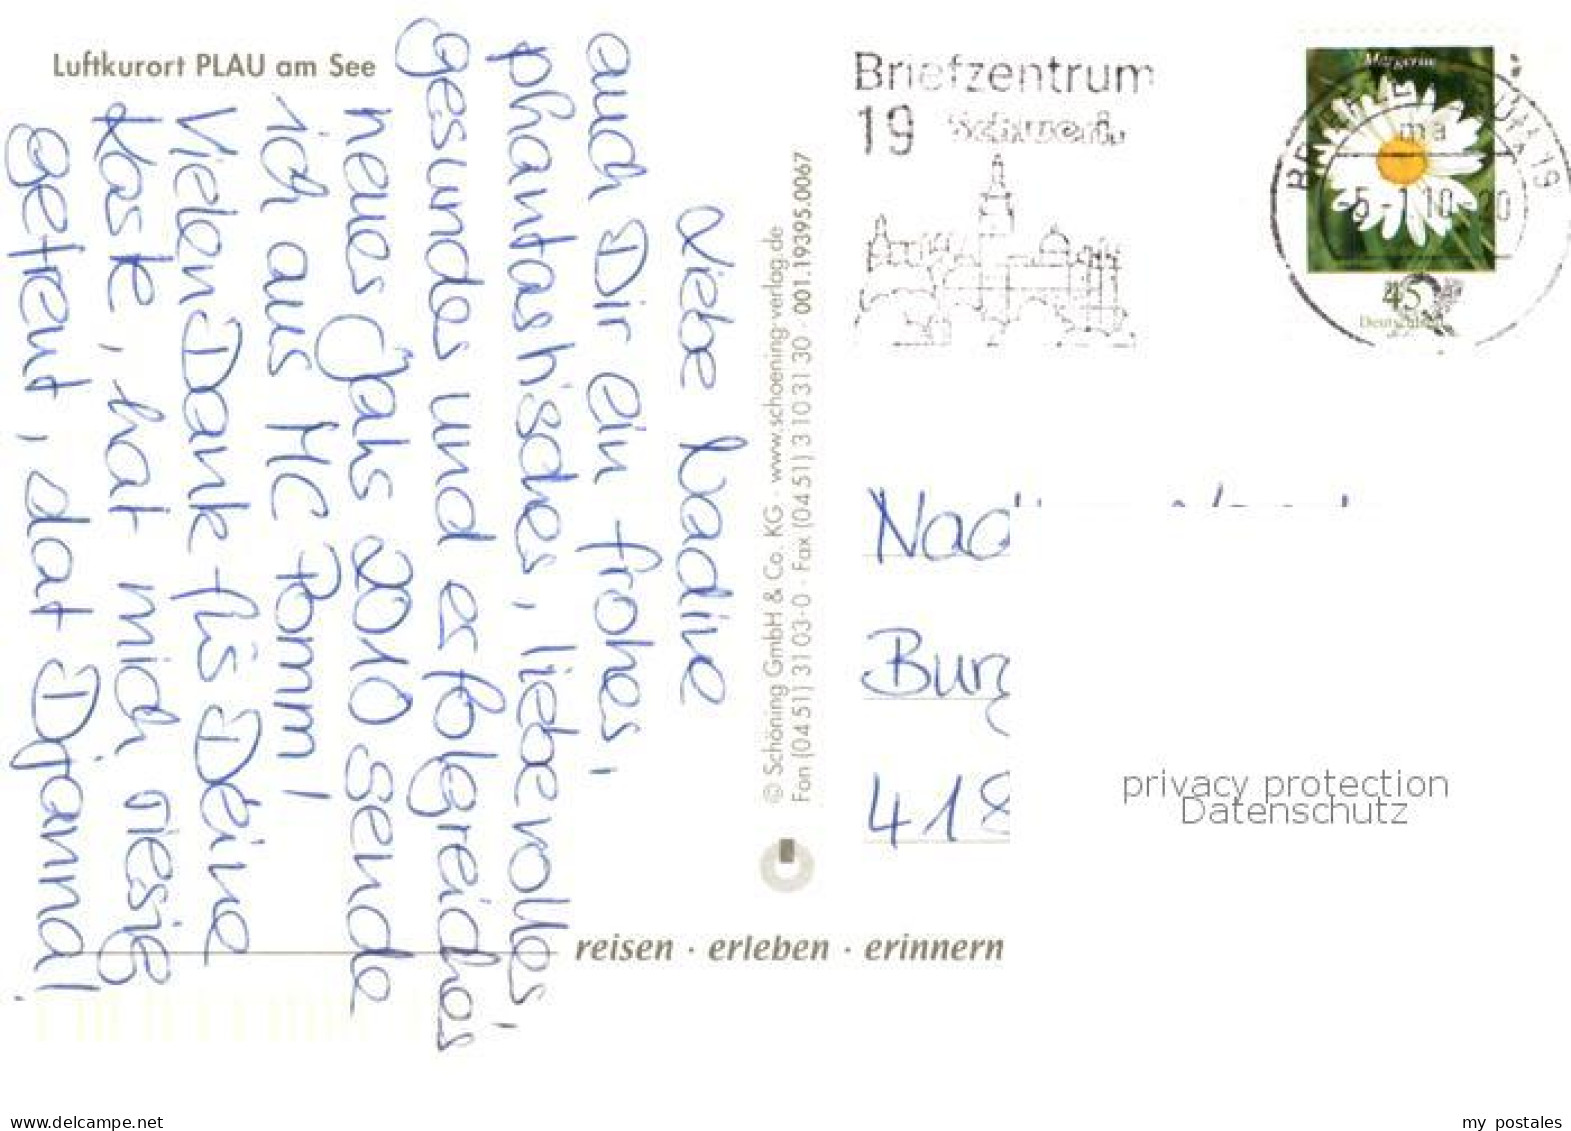 Luftkurort PLAU am See
Liebe Nadine
auch Dir ein frohes,
phantastisches, liebevolles,
gesundes und erfolgreiches
neues Jahr 2010 sende
ich aus MC Pomm!
Vielen Dank für Deine
Karte, hat mich riesig
gefreut, dat Djanna!
© Schöning GmbH & Co. KG · www.schoening-verlag.de
Fon (04 51) 31 03-0 · Fax (04 51) 3 10 31 30 · 001.19395.0067
reisen · erleben · erinnern
Briefzentrum
19 Schwerin
Margerite
45
Deutschland
BRIEFZENTRUM 19
ma
-5.-1.10-20
Nad
Burg
418
privacy protection
Datenschutz
www.delcampe.net
my_postales